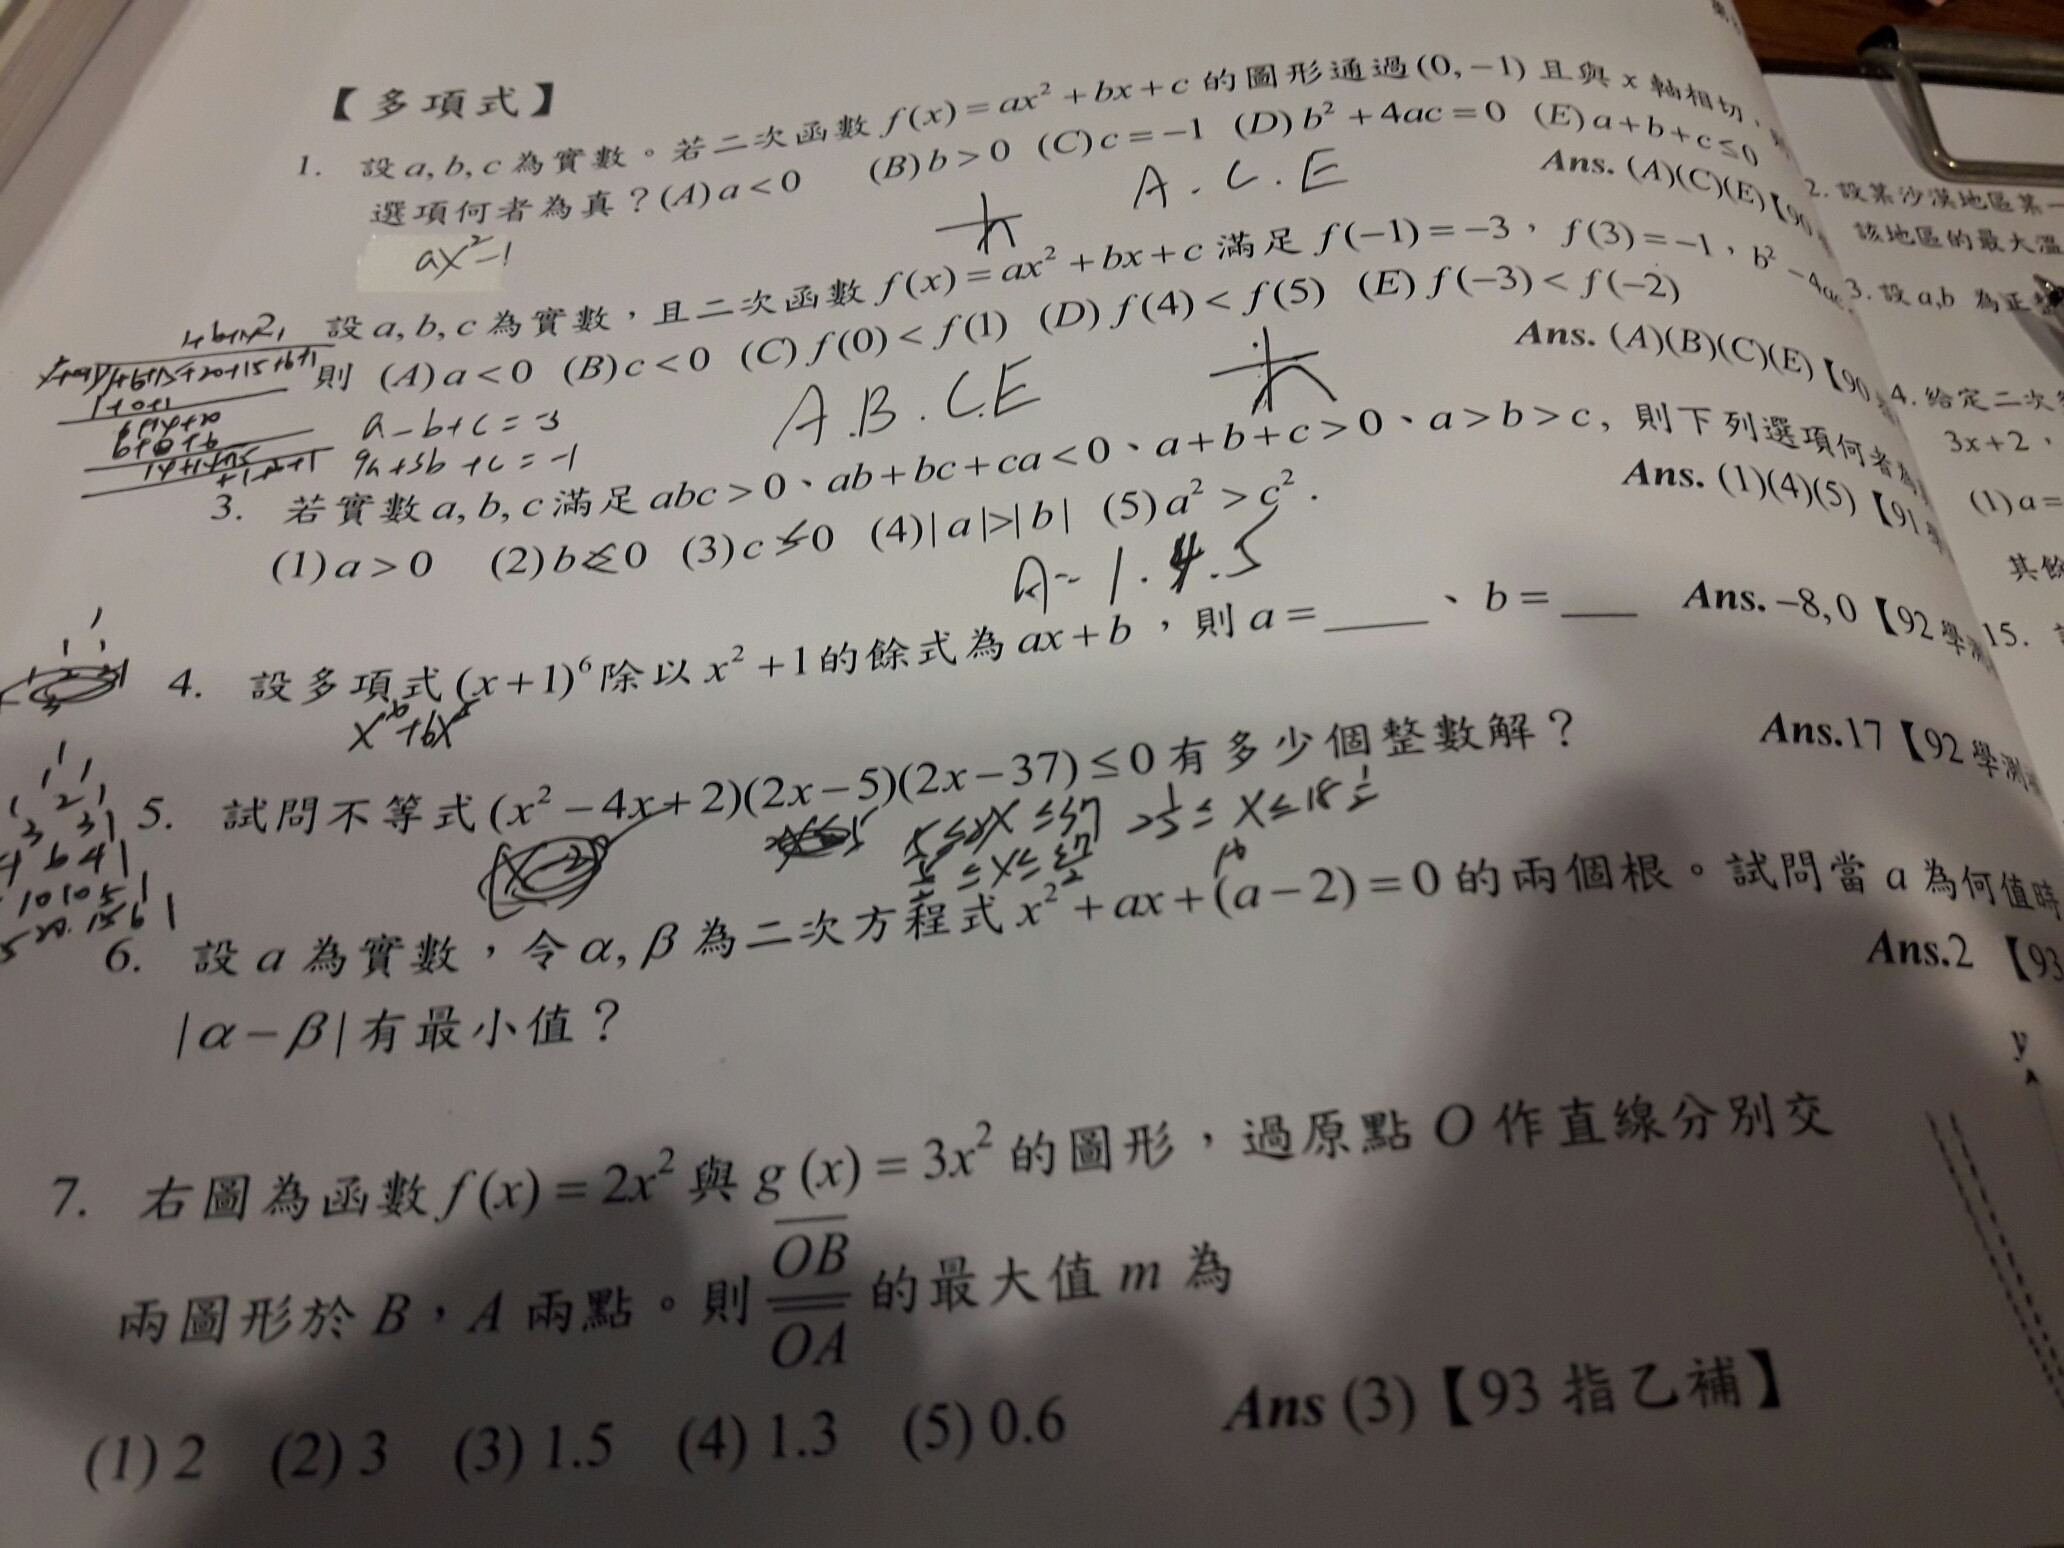 【多項式】
1. 設 a, b, c 為實數。若二次函數 f(x) = ax² + bx + c 的圖形通過 (0, −1) 且與 x 軸相切，
選項何者為真？(A) a < 0 (B) b > 0 (C) c = −1 (D) b² + 4ac = 0 (E) a + b + c ≤ 0
Ans. (A)(C)(E)【90
A . C . E
ax² −1
設 a, b, c 為實數，且二次函數 f(x) = ax² + bx + c 滿足 f(−1) = −3，f(3) = −1，b² − 4ac
則 (A) a < 0 (B) c < 0 (C) f(0) < f(1) (D) f(4) < f(5) (E) f(−3) < f(−2)
Ans. (A)(B)(C)(E)【90
A.B.C.E
a − b + c = −3
9a + 3b + c = −1
3. 若實數 a, b, c 滿足 abc > 0、ab + bc + ca < 0、a + b + c > 0、a > b > c, 則下列選項何者為
(1) a > 0 (2) b 0 (3) c 0 (4) | a |>| b | (5) a² > c².
Ans. (1)(4)(5)【91
1.4.5
4. 設多項式 (x + 1)⁶ 除以 x² + 1 的餘式為 ax + b，則 a = ____、b = ____ Ans. −8, 0【92 學測
5. 試問不等式 (x² − 4x + 2)(2x − 5)(2x − 37) ≤ 0 有多少個整數解？ Ans.17【92 學測
5 ≤ 2x ≤ 37
5/2 ≤ x ≤ 37/2
≤ x ≤ 18 1/2
6. 設 a 為實數，令 α, β 為二次方程式 x² + ax + (a − 2) = 0 的兩個根。試問當 a 為何值時
| α − β | 有最小值？ Ans.2【93
7. 右圖為函數 f(x) = 2x² 與 g (x) = 3x² 的圖形，過原點 O 作直線分別交
兩圖形於 B，A 兩點。則 OB/OA 的最大值 m 為
(1) 2 (2) 3 (3) 1.5 (4) 1.3 (5) 0.6 Ans (3)【93 指乙補】
2. 設某沙漠地區某一
該地區的最大溫
3. 設 a,b 為正
4. 給定二次
3x + 2，
(1) a =
其餘
15.
y